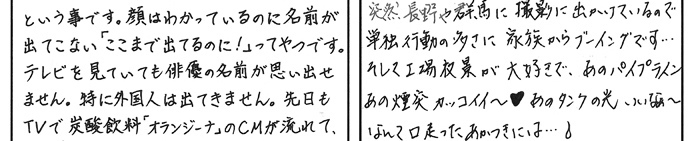 という事です。顔はわかっているのに名前が
出てこない「ここまで出てるのに!」ってやつです。
テレビを見ていても俳優の名前が思い出せ
ません。特に外国人は出てきません。先日も
TVで炭酸飲料「オランジーナ」のCMが流れて、
突然、長野や群馬に撮影に出かけているので
単独行動の多さに家族からブーイングです…
そして工場夜景が大好きで、あのパイプライン
あの煙突カッコイイ～♥あのタンクの光いい
なんて口走ったあかつきには…